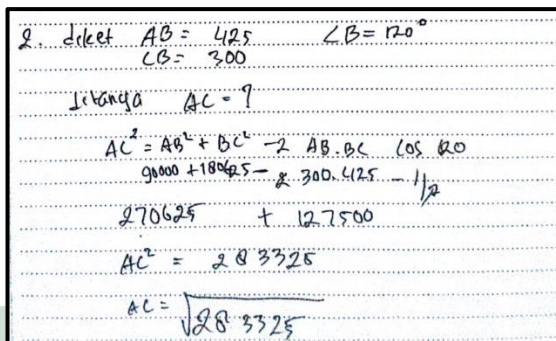 2. diket AB = 425 ∠B = 120°
CB = 300
ditanya AC = ?
AC² = AB² + BC² - 2 AB.BC cos 120
90000 + 180625 - 2 300.425 - 1/2
270625 + 127500
AC² = 283325
AC = √283325